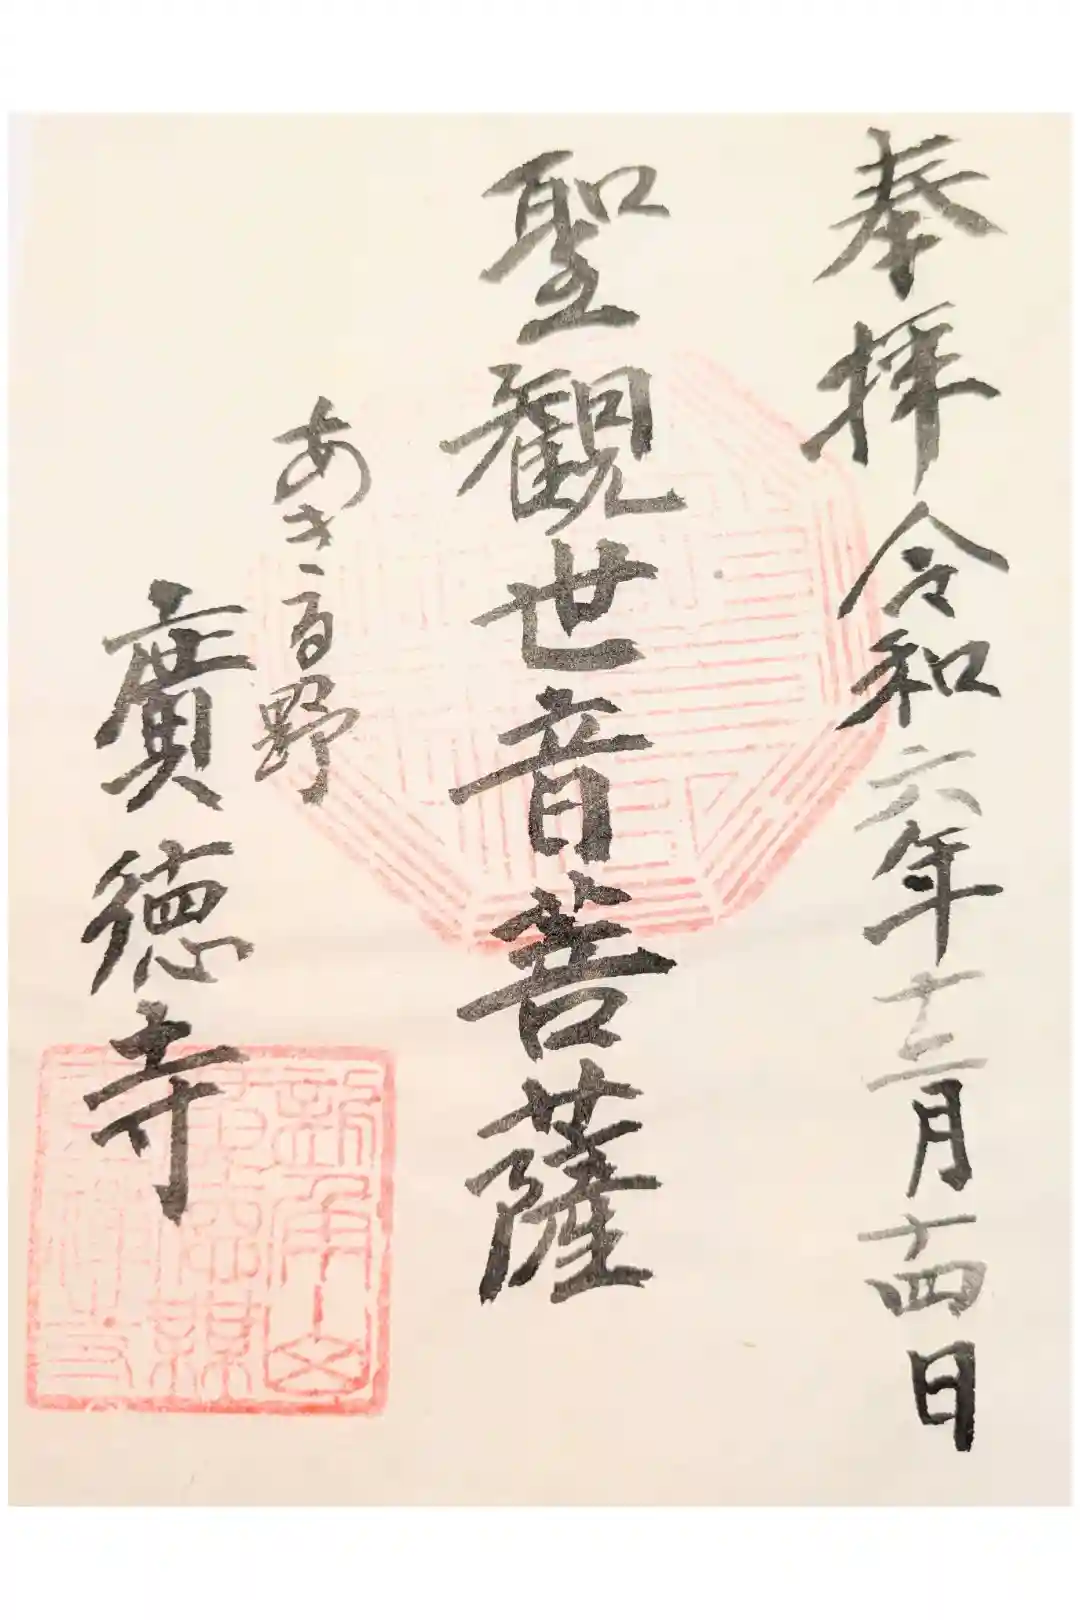 奉拝令和六年十二月十四日
聖観世音菩薩
あきる野
廣徳寺